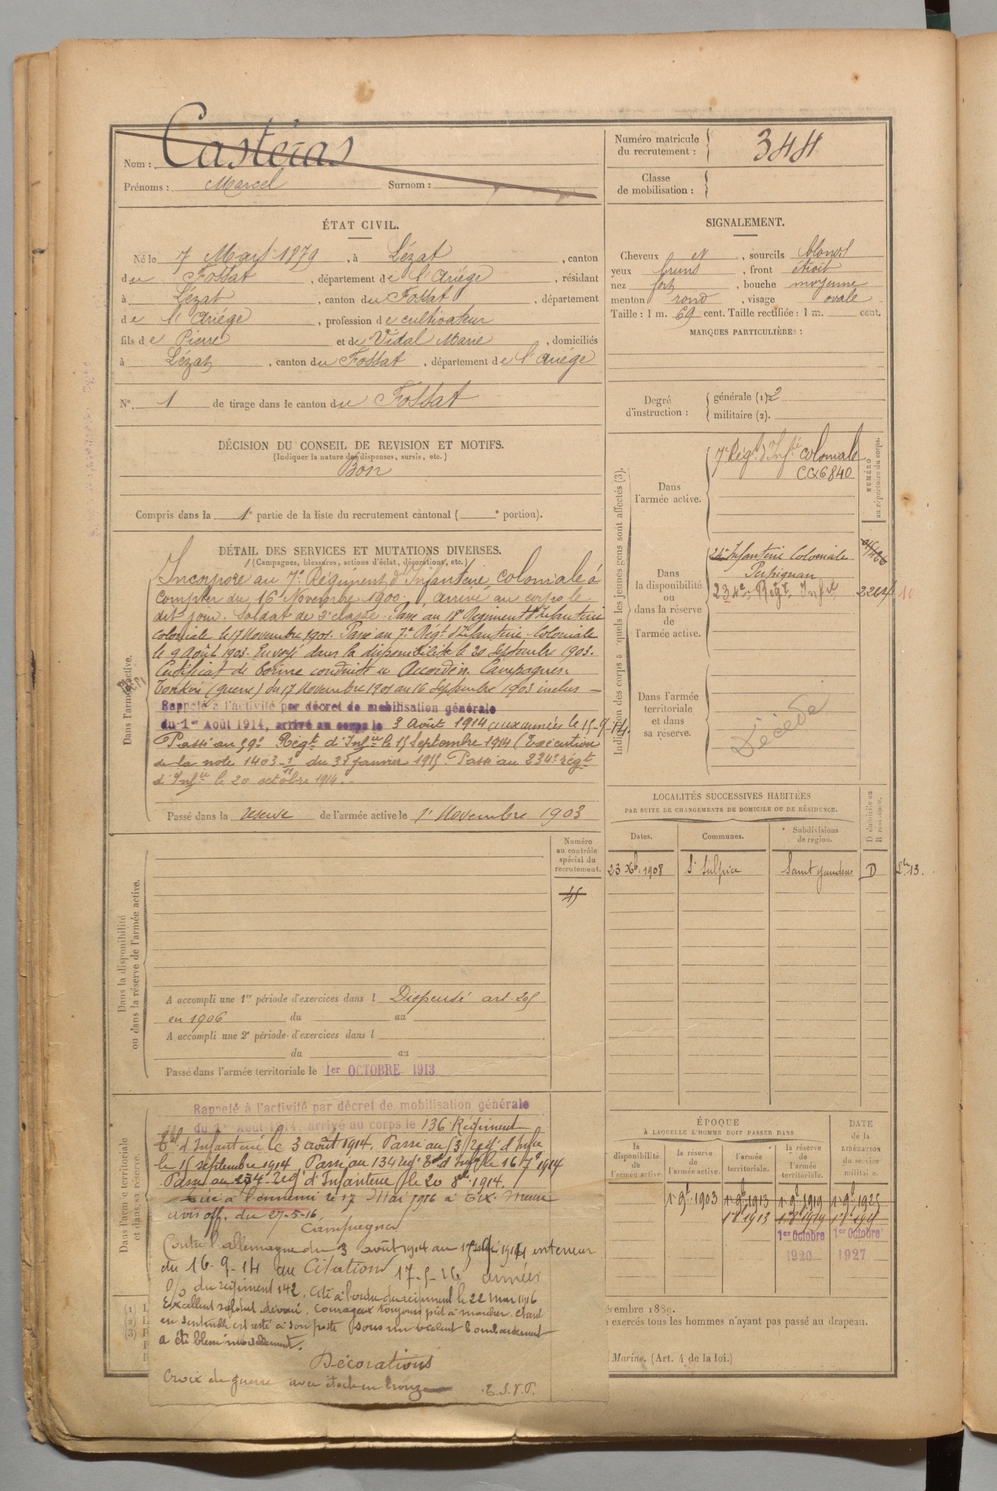 Nom : Castéras
Prénoms : Marcel Surnom :
Numéro matricule du recrutement : 344
Classe de mobilisation :
ÉTAT CIVIL.
Né le 7 Mars 1879, à Lézat, canton
du Fossat, département de l'Ariége, résidant
à Lézat, canton du Fossat, département
de l'Ariége, profession de cultivateur
fils de Pierre et de Vidal Marie, domiciliés
à Lézat, canton du Fossat, département de l'Ariége
N° 1 de tirage dans le canton du Fossat
SIGNALEMENT.
Cheveux et, sourcils blonds
yeux bruns, front étroit
nez fort, bouche moyenne
menton rond, visage ovale
Taille : 1 m. 69 cent. Taille rectifiée : 1 m. cent.
MARQUES PARTICULIÈRES :
Degré d'instruction : générale (1) 2
militaire (2).
DÉCISION DU CONSEIL DE REVISION ET MOTIFS.
(Indiquer la nature des dispenses, sursis, etc.)
Bon
Compris dans la 1e partie de la liste du recrutement cantonal ( e portion).
DÉTAIL DES SERVICES ET MUTATIONS DIVERSES.
(Campagnes, blessures, actions d'éclat, décorations, etc.)
Dans l'armée active.
Incorporé au 7e Régiment d'Infanterie coloniale à
compter du 16 Novembre 1900, arrivé au corps le
dit jour. Soldat de 2e classe. Passé au 18e Régiment d'Infanterie
coloniale le 17 Novembre 1901. Passé au 7e Régt d'Infanterie Coloniale
le 9 Août 1903. Envoyé dans la disponibilité le 20 Septembre 1903.
Certificat de bonne conduite « Accordé ». Campagnes :
Tonkin (guerre) du 17 Novembre 1901 au 16 Septembre 1903 inclus
Rappelé à l'activité par décret de mobilisation générale
du 1er Août 1914, arrivé au corps le 3 Août 1914 aux armées le 15-9-14
Passé au 59e Régt d'Infie le 15 Septembre 1914 (Exécution
de la note 1403-1 du 31 janvier 1915. Passé au 234e régt
d'Infie le 20 octobre 1914.
Passé dans la réserve de l'armée active le 1er Novembre 1903
Indication des corps auxquels les jeunes gens sont affectés (3).
NUMÉRO au répertoire du corps.
Dans l'armée active.
7e Régt d'Infie coloniale
CQ6840
Dans la disponibilité ou dans la réserve de l'armée active.
24e Infanterie Coloniale
Perpignan
234e Régt Infie
Dans l'armée territoriale et dans sa réserve.
Décédé
LOCALITÉS SUCCESSIVES HABITÉES
PAR SUITE DE CHANGEMENTS DE DOMICILE OU DE RÉSIDENCE.
Dates. Communes. Subdivisions de région. D domicile ou R résidence.
23 Xb. 1908 St Sulpice Saint Gaudens D
Dans la disponibilité ou dans la réserve de l'armée active.
Numéro au contrôle spécial du recrutement.
A accompli une 1re période d'exercices dans l Dispensé art. 29
en 1906 du au
A accompli une 2e période d'exercices dans l
du au
Passé dans l'armée territoriale le 1er OCTOBRE 1913
Dans l'armée territoriale et dans sa réserve.
Rappelé à l'activité par décret de mobilisation générale
du 1er Août 1914, arrivé au corps le 136 Régiment
tal d'Infanterie le 3 août 1914. Passé au
le 15 septembre 1914 Passé au 134 régt tal d'Infie le 16 7e 1914
Passé au 234e régt d'Infanterie le 20 8bre 1914.
Tué à l'ennemi le 17 Mai 1916 à Eix Meuse
avis off. du 27-5-16.
Campagnes
Contre l'allemagne du 3 août 1914 au 15 1914 intérieur
du 16-9-14 au 17-5-16 armées
Citation
O/ du régiment 142. Cité à l'ordre du régiment le 22 mai 1916
Excellent soldat dévoué, courageux toujours prêt à marcher. Etant
en sentinelle est resté à son poste sous un violent bombardement
a été blessé mortellement.
Décorations
Croix de guerre avec étoile en bronze E.S.V.P.
ÉPOQUE
À LAQUELLE L'HOMME DOIT PASSER DANS
la disponibilité de l'armée active. la réserve de l'armée active. l'armée territoriale. la réserve de l'armée territoriale. DATE de la LIBÉRATION du service militaire.
1er 9b 1903 1er 9b 1913 1er 9b 1919 1er 9b 1925
1er Octobre 1920 1er Octobre 1927
écembre 1889.
exercés tous les hommes n'ayant pas passé au drapeau.
Marine. (Art. 4 de la loi.)